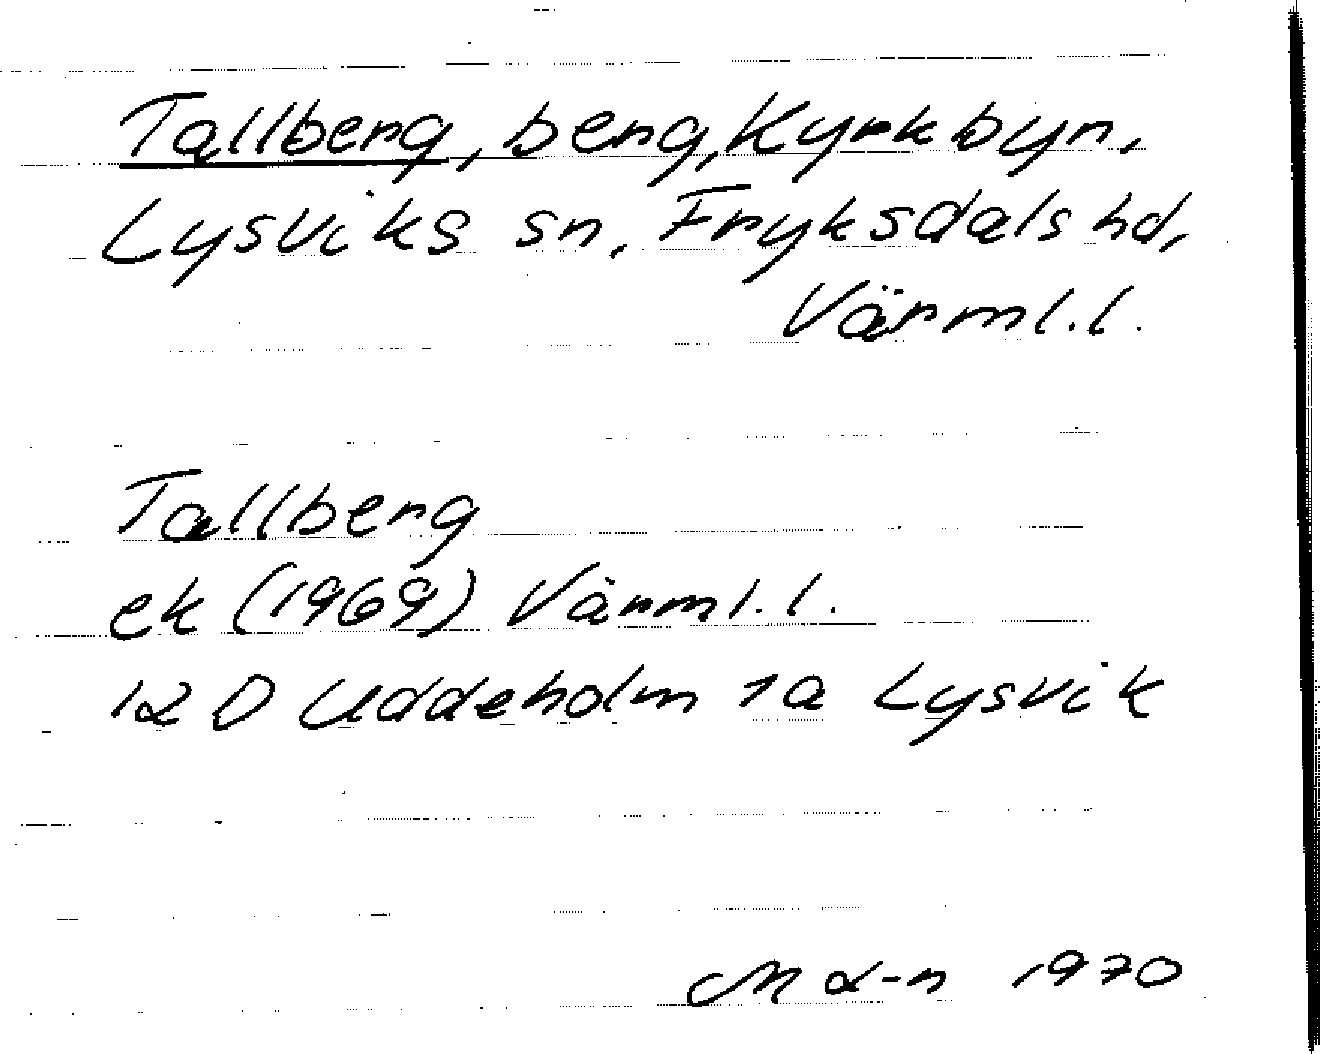 Tallberg, berg, Kyrkbyn,
Lysviks sn, Fryksdals hd,
Värml. l.
Tallberg
ek (1969) Värml. l.
12 D Uddeholm 1a Lysvik
1970